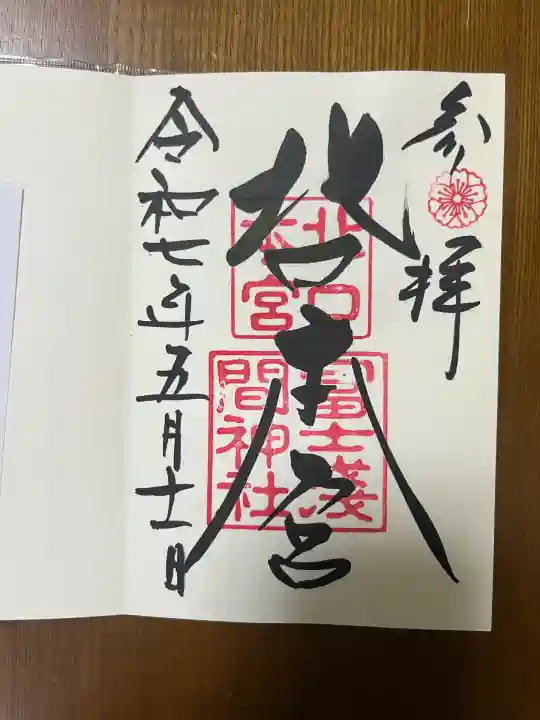 参拝
北口本宮
北口
本宮
冨士浅
間神社
令和七年五月十一日